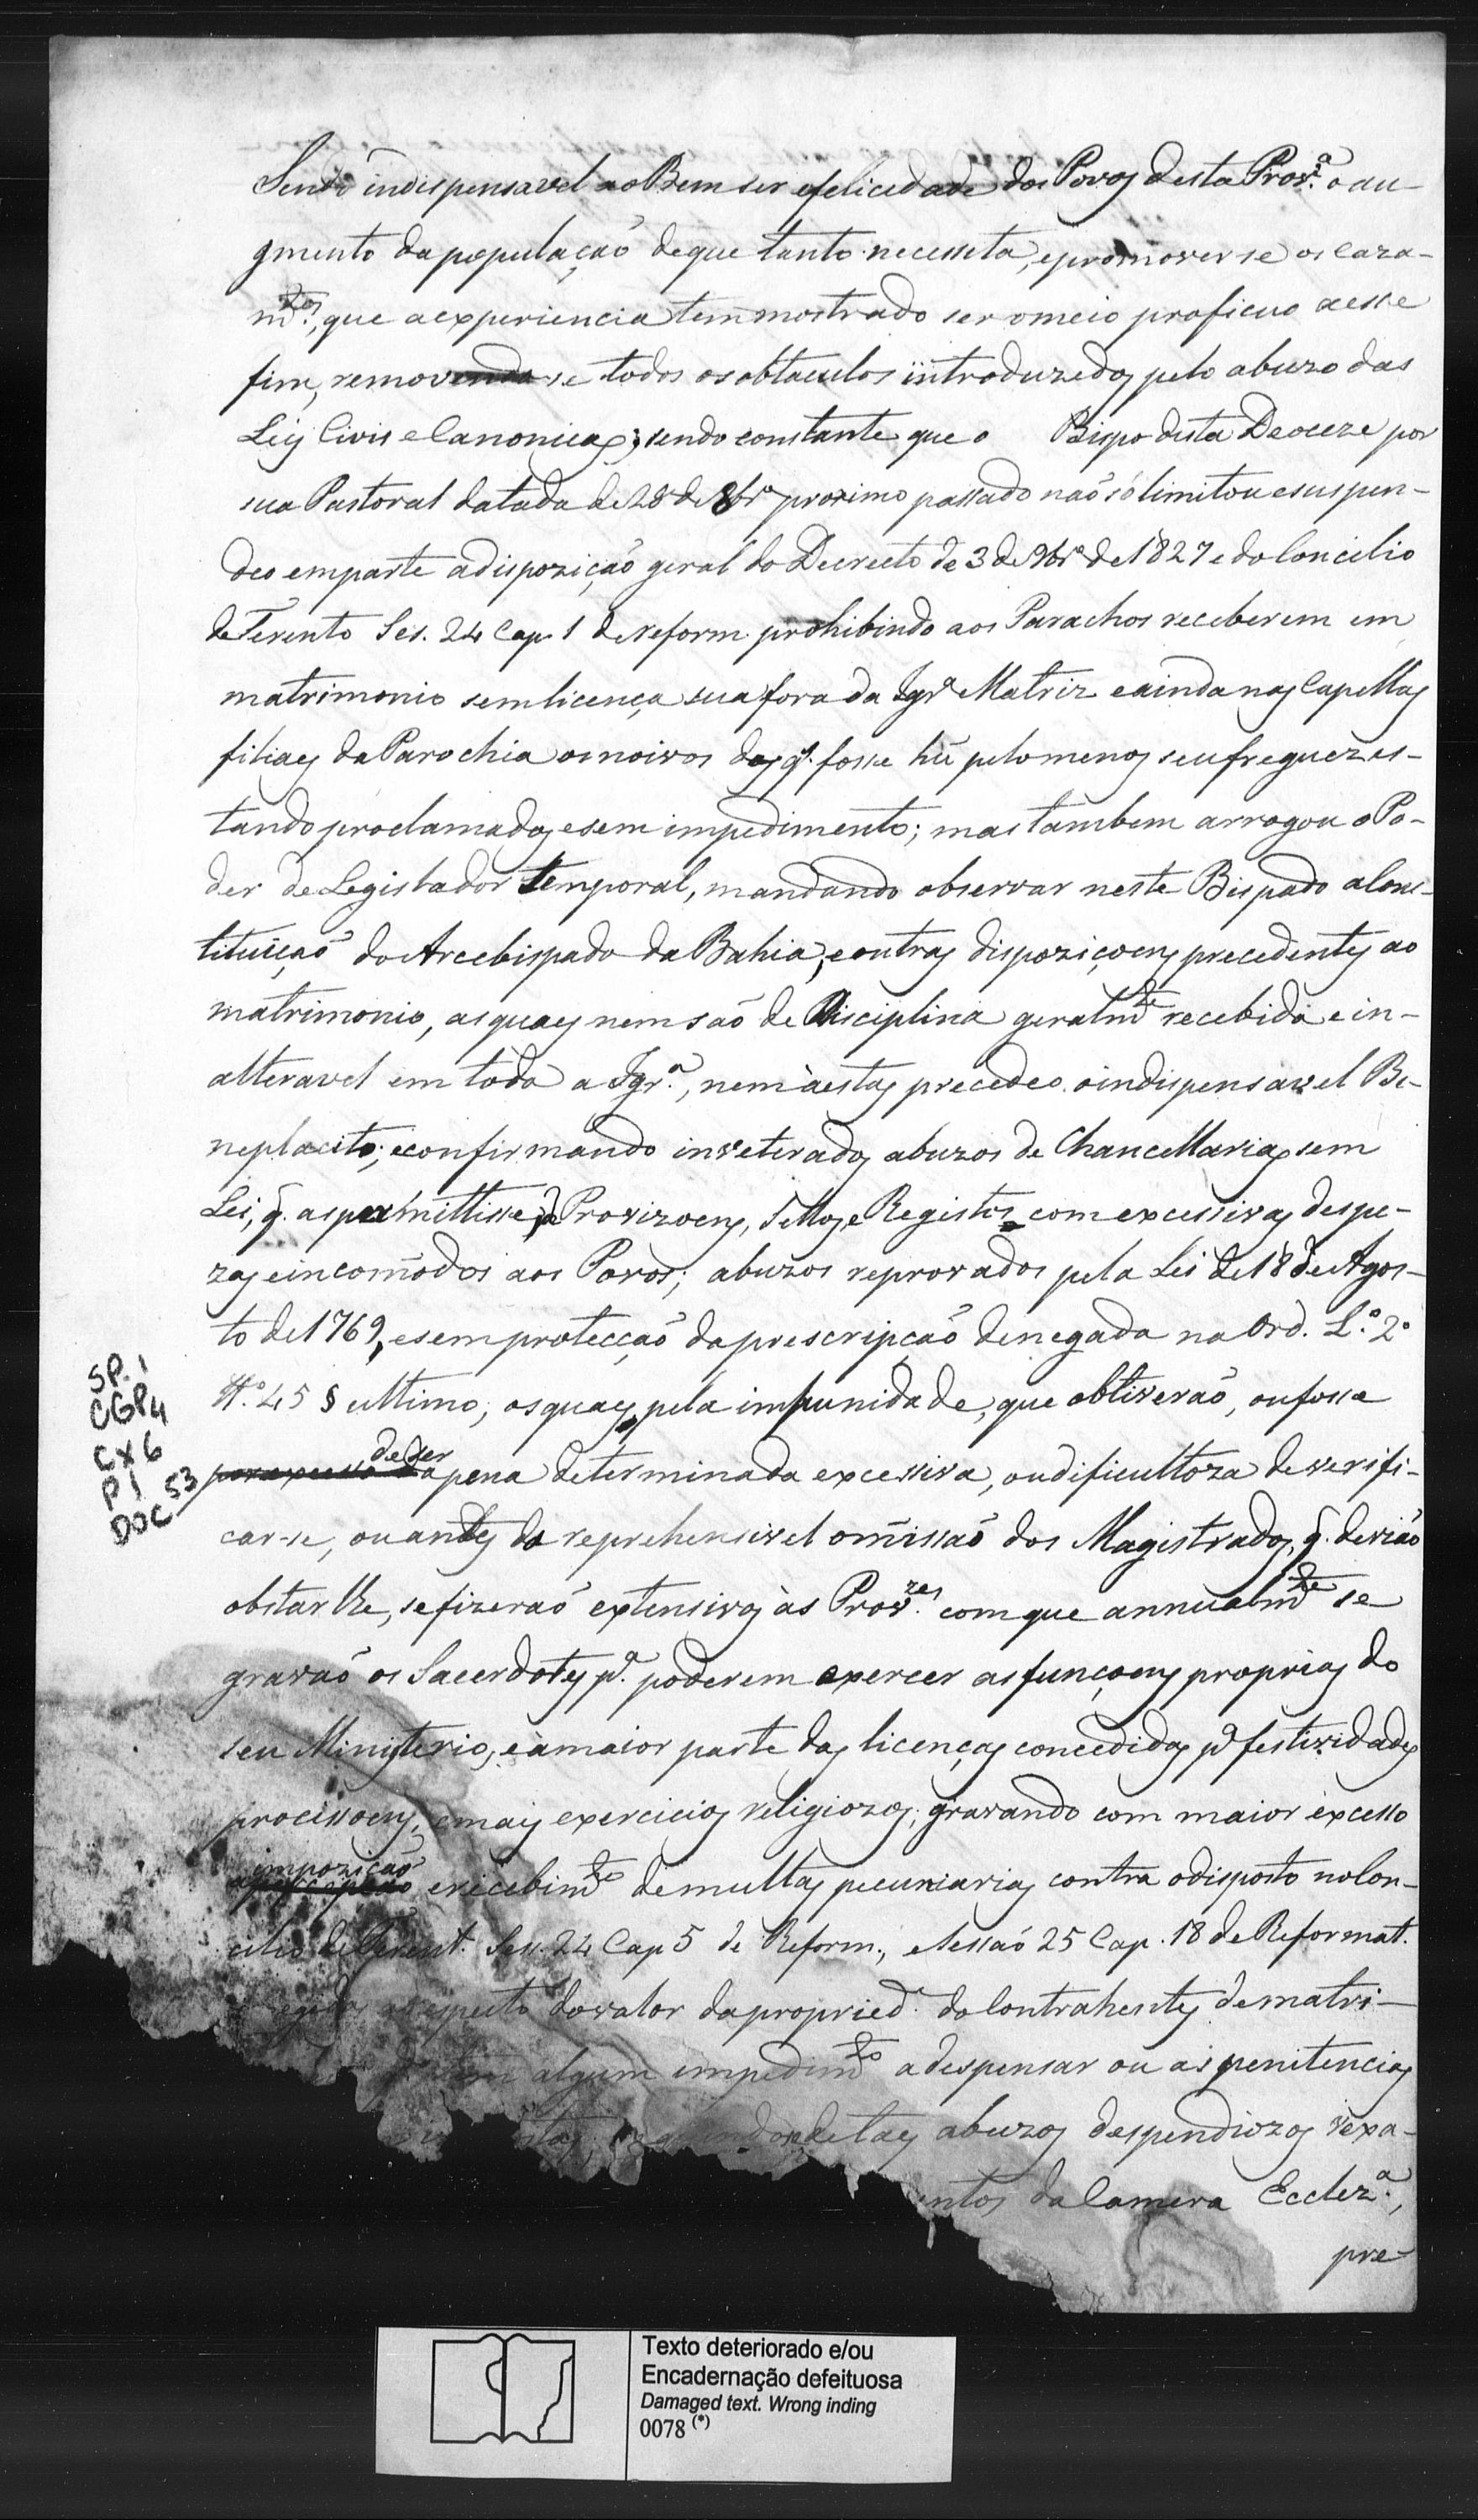 Sendo indispensavel ao Bem ser e felicidade dos Povos desta Prov.ª o au-
gmento da população de que tanto necessita, e promover-se os caza-
m.tos, que a experiencia tem mostrado ser o meio proficuo a esse
fim, removendo se todos os obtaculos introduzidos pelo abuzo das
Leis Civis e Canonicas; sendo constante que o Bispo desta Deoceze por
sua Pastoral datada de 28 de 8br.º proximo passado não só limitou e suspen-
deo em parte a dispozição geral do Decreto de 3 de 9br.º de 1827 e do Concilio
de Terento Ses. 24 Cap. 1 de reform. prohibindo aos Parachos receberem em
matrimonio sem licença sua fora da Igr.ª Matriz e ainda nas Capellas
filiaes da Parochia os noivos dos q. fosse hũ pelo menos seu freguez es-
tando proclamados e sem impedimento; mas tambem arrogou o Po-
der de Legislador temporal, mandando observar neste Bispado a Cons-
tituição do Arcebispado da Bahia, e outras dispoziçoens precedentes ao
matrimonio, as quaes nem são de Disciplina geralm.te recebida e in-
alteravel em toda a Igr.ª, nem àestas precedeo o indispensavel Be-
neplacito; e confirmando inveterados abuzos de Chancellarias sem
Lei, q. as permittisse, de Provizoens, Sellos, e Registos com excessivas despe-
zas e incomodos aos Povos; abuzos reprovados pela Lei de 18 de Agos-
to de 1769, e sem protecção da prescripção denegada na Ord. L.º 2º
tt.º 45 § ultimo, os quaes pela impunidade, que obtiverão, ou fosse
de ser
por excesso da pena determinada excessiva, ou dificultoza de verifi-
car-se, ou antes da reprehensivel omissão dos Magistrados, q. devião
obstar lhe, se fizerão extensivos às Prov.zes com que annualm.te se
gravão os Sacerdotes p.ª poderem exercer as funçoens proprias do
seu Ministerio, e à maior parte das licenças concedidas p.ª festividades
procissoens, e mais exercicios religiozos; gravando com maior excesso
impozição
e recebim.to de multas pecuniarias contra o disposto no Con-
cilio de Terent. Ses. 24 Cap 5 de Reform., e Sessão 25 Cap. 18 de Reformat.
a respeito do valor da propried.e do Contrahentes de matri-
algum impedim.to a despensar ou as penitencias
de taes abuzos despendiozos vexa-
entos da Camera Eclez.ª,
pre-
SP. 1
CGP4
CX 6
P1
DOC 53
Texto deteriorado e/ou
Encadernação defeituosa
Damaged text. Wrong inding
0078 (*)